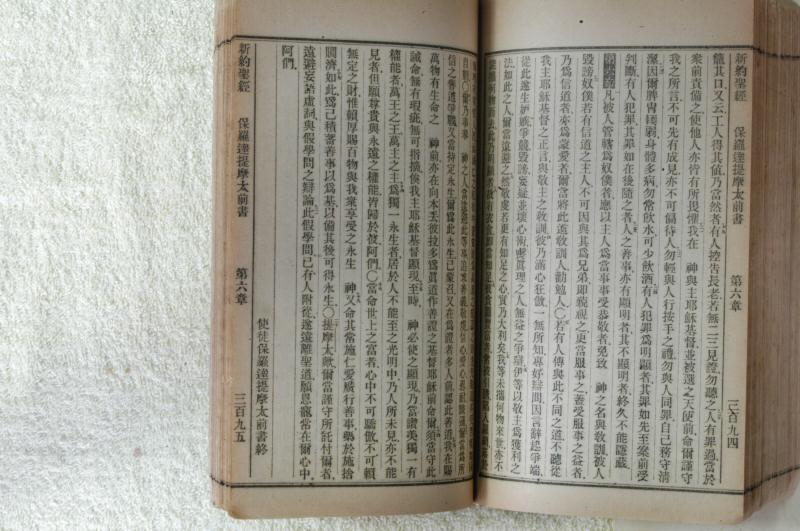 新約聖經 保羅達提摩太前書 第六章 三百九四
籠其口又云工人得其值乃當然者有人控告長老若無二三見證勿聽之人有罪過當於
衆前責備之使他人亦皆有所畏懼我在 神與主耶穌基督並被選之天使前命爾謹守
我之所言不可先有成見亦不可偏待人勿輕與人行按手之禮勿與人同罪自己務守淸
潔因爾脾胃軟弱身體多病勿常飲水可少飲酒有人犯罪爲明顯者其罪如先至案前受
判斷有人犯罪其罪如在後隨之者人之善事亦有顯明者其不顯明者終久不能隱蔽
凡被人管轄爲奴僕者應以主人爲當事事受恭敬者免致 神之名與敎訓被人
毀謗奴僕若有信道之主人不可因與其爲兄弟卽藐視之更當服事之蓋受服事之益者
乃爲信道者亦爲蒙愛者爾當將此道敎訓人勸勉人〇若有人傳與此不同之道不聽從
我主耶穌基督之正言與敬主之敎訓彼乃滿心狂傲一無所知專好辯問因言辭起爭端
從此遂生妒嫉爭競毀謗妄疑並壞心術虧眞理之人無益之爭辯伊等以敬主爲獲利之
法如此之人爾當遠避之然敬虔若更有知足之心實乃大利矣我等未攜何物來世亦不
信之善道爭戰又當持定永生爾爲此永生已蒙召又在爲證者多人前認此善道我在賜
萬物有生命之 神前亦在向本丟彼拉多爲眞道作善證之基督耶穌前命爾須當守此
誡命無有瑕疵無可指摘俟我主耶穌基督顯現至時 神必使之顯現乃當讚美獨一有
權能者萬王之王萬主之主爲獨一永生者居於人不能至之光明中乃人所未見亦不能
見者但願尊貴與永遠之權能皆歸於彼阿們〇當命世上之富者心中不可驕傲不可賴
無定之財惟賴厚賜百物與我衆享受之永生 神又命其常施仁愛廣行善事樂於施捨
賙濟如此爲己積蓄善事以爲基以備其後可得永生〇提摩太歟爾當謹守所託付爾者
遠避妄語虛詞與假學問之辯論此假學問已有人附從遂遠離聖道願恩寵常在爾心中
阿們
使徒保羅達提摩太前書終
新約聖經 保羅達提摩太前書 第六章 三百九五